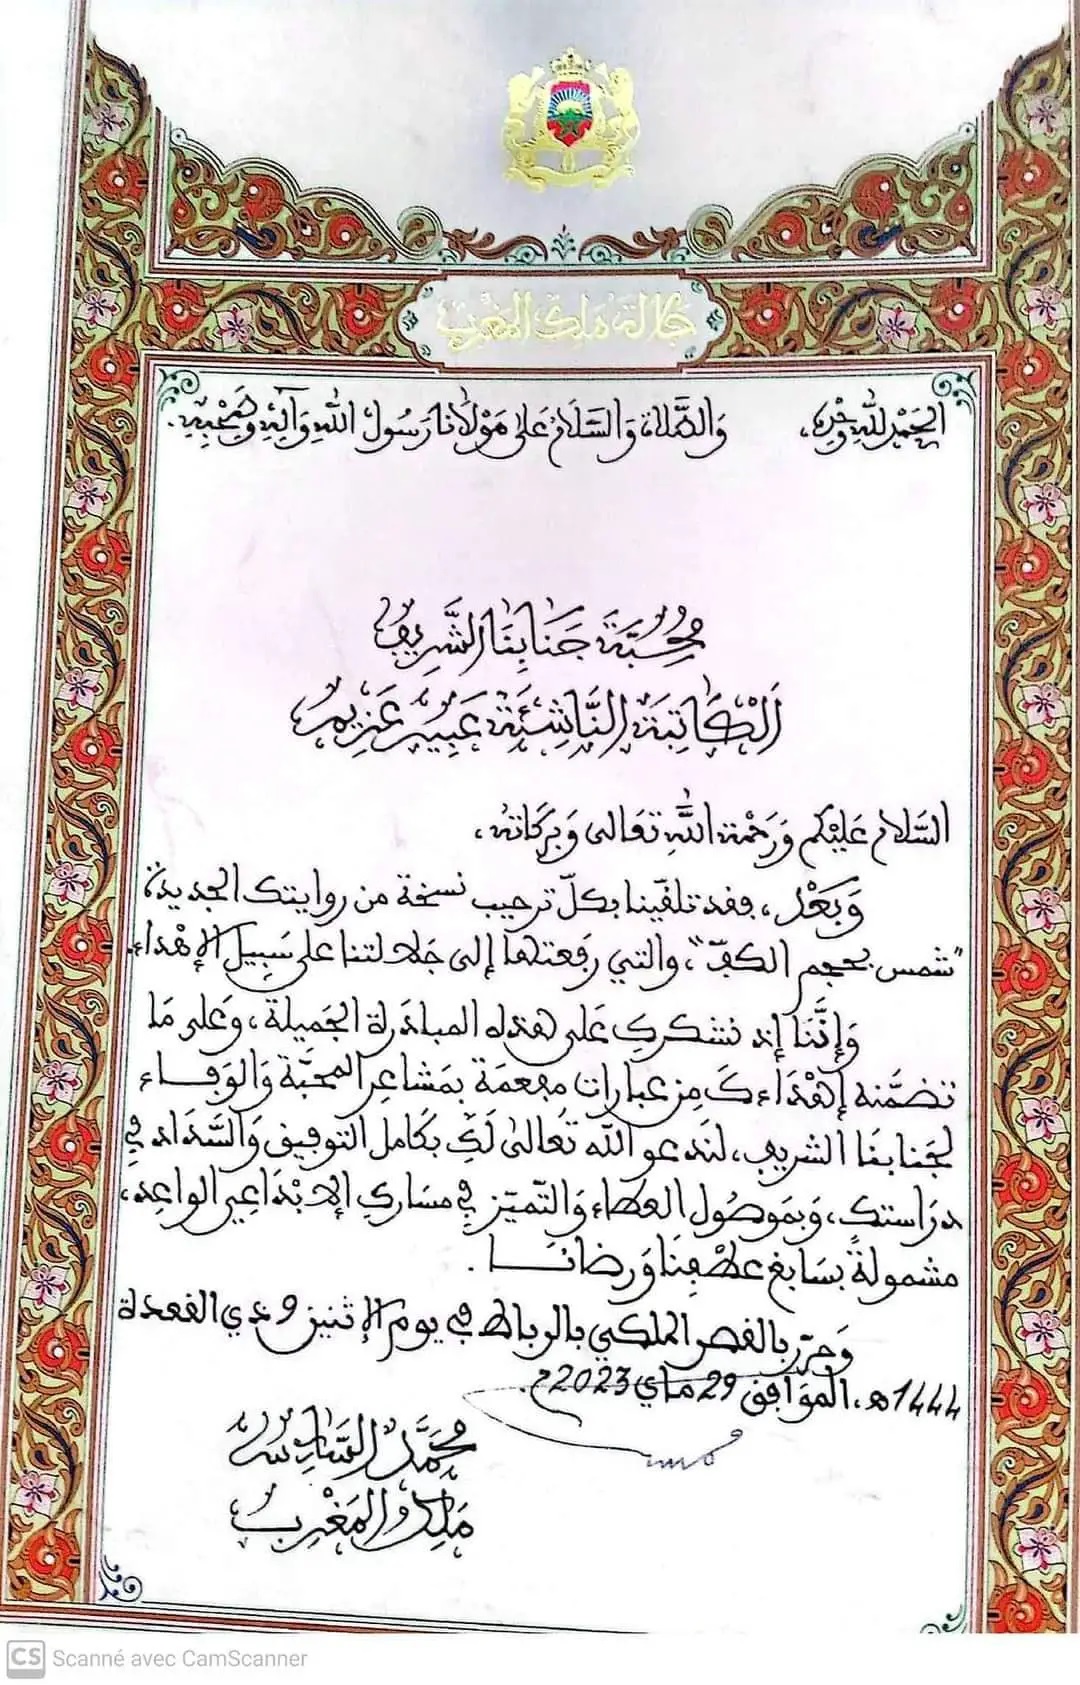 جلالة ملك المغرب
الحمد لله وحده، والصلاة والسلام على مولانا رسول الله وآله وصحبه.
محبة جنابنا الشريف
الكاتبة الناشئة عبير عزيم
السلام عليكم ورحمة الله تعالى وبركاته،
وبعد، فقد تلقينا بكل ترحيب نسخة من روايتك الجديدة
"شمس بحجم الكف"، والتي رفعتها إلى جلالتنا على سبيل الإهداء.
وإننا إذ نشكرك على هذه المبادرة الجميلة، وعلى ما
تضمنه إهداءك من عبارات مفعمة بمشاعر المحبة والوفاء
لجنابنا الشريف، لندعو الله تعالى لك بكامل التوفيق والسداد في
دراستك، وبموصول العطاء والتميز في مسارك الإبداعي الواعد،
مشمولة بسابغ عطفنا ورضانا.
وحرر بالقصر الملكي بالرباط في يوم الإثنين 9 ذي القعدة
1444هـ، الموافق 29 ماي 2023م.
محمد السادس
ملك المغرب
CS Scanné avec CamScanner